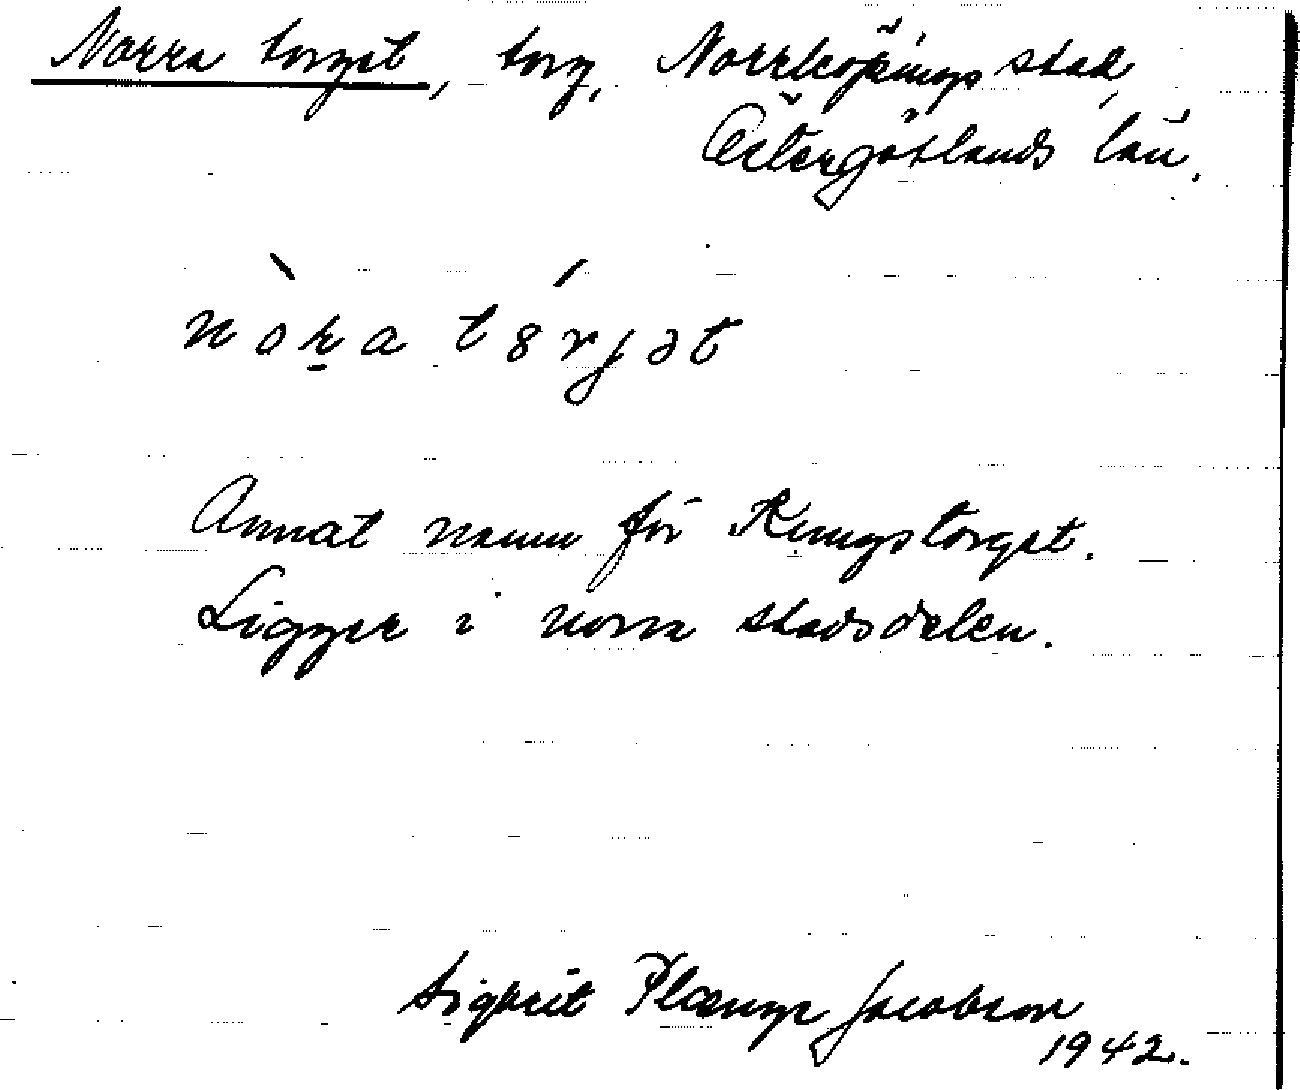 Norra torget, torg, Norrköpings stad,
Östergötlands län.
nòra tó̤rjət
Annat namn för Kungstorget.
Ligger i norra stadsdelen.
Sigbrit Plænge Jacobson
1942.